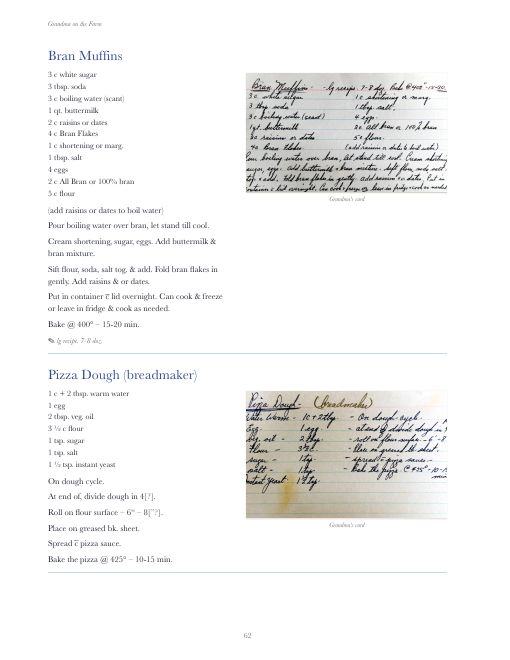 Grandma on the Farm
Bran Muffins
3 c white sugar
3 tbsp. soda
3 c boiling water (scant)
1 qt. buttermilk
2 c raisins or dates
4 c Bran Flakes
1 c shortening or marg.
1 tbsp. salt
4 eggs
2 c All Bran or 100% bran
5 c flour
(add raisins or dates to boil water)
Pour boiling water over bran, let stand till cool.
Cream shortening, sugar, eggs. Add buttermilk &
bran mixture.
Sift flour, soda, salt tog. & add. Fold bran flakes in
gently. Add raisins & or dates.
Put in container c̅ lid overnight. Can cook & freeze
or leave in fridge & cook as needed.
Bake @ 400° – 15-20 min.
✎ lg recipt. 7-8 doz.
Bran Muffins - lg recipe 7-8 doz. Bake @ 400° 15-20
3 c white sugar 1 c shortening or marg.
3 tbsp soda 1 tbsp. salt.
3 c boiling water (scant) 4 eggs.
1 qt. buttermilk 2c All Bran or 100% bran
2c raisins or dates 5c flour.
4c Bran Flakes (add raisins or dates to boil water)
Pour boiling water over bran, let stand till cool. Cream shortening
sugar, eggs. Add buttermilk & bran mixture. Sift flour, soda salt
tog & add. Fold bran flakes in gently. Add raisins & or dates. Put in
container c̅ lid overnight. Can cook & freeze or leave in fridge & cook as needed
Grandma's card
Pizza Dough (breadmaker)
1 c + 2 tbsp. warm water
1 egg
2 tbsp. veg. oil
3 ½ c flour
1 tsp. sugar
1 tsp. salt
1 ½ tsp. instant yeast
On dough cycle.
At end of, divide dough in 4[?].
Roll on flour surface – 6" – 8["?].
Place on greased bk. sheet.
Spread c̅ pizza sauce.
Bake the pizza @ 425° – 10-15 min.
Pizza Dough - (breadmaker)
Water Warm - 1c+2tbsp - On dough cycle.
Egg - 1 egg - at end of divide dough in
Veg. oil - 2 tbsp - roll on flour surface - 6"-8
Flour - 3½c. - Place on greased bk. sheet.
sugar - 1 tsp - spread c̅ pizza sauce
salt - 1 tsp - Bake the pizza @ 425° - 10-
instant yeast 1½ tsp. min
Grandma's card
62